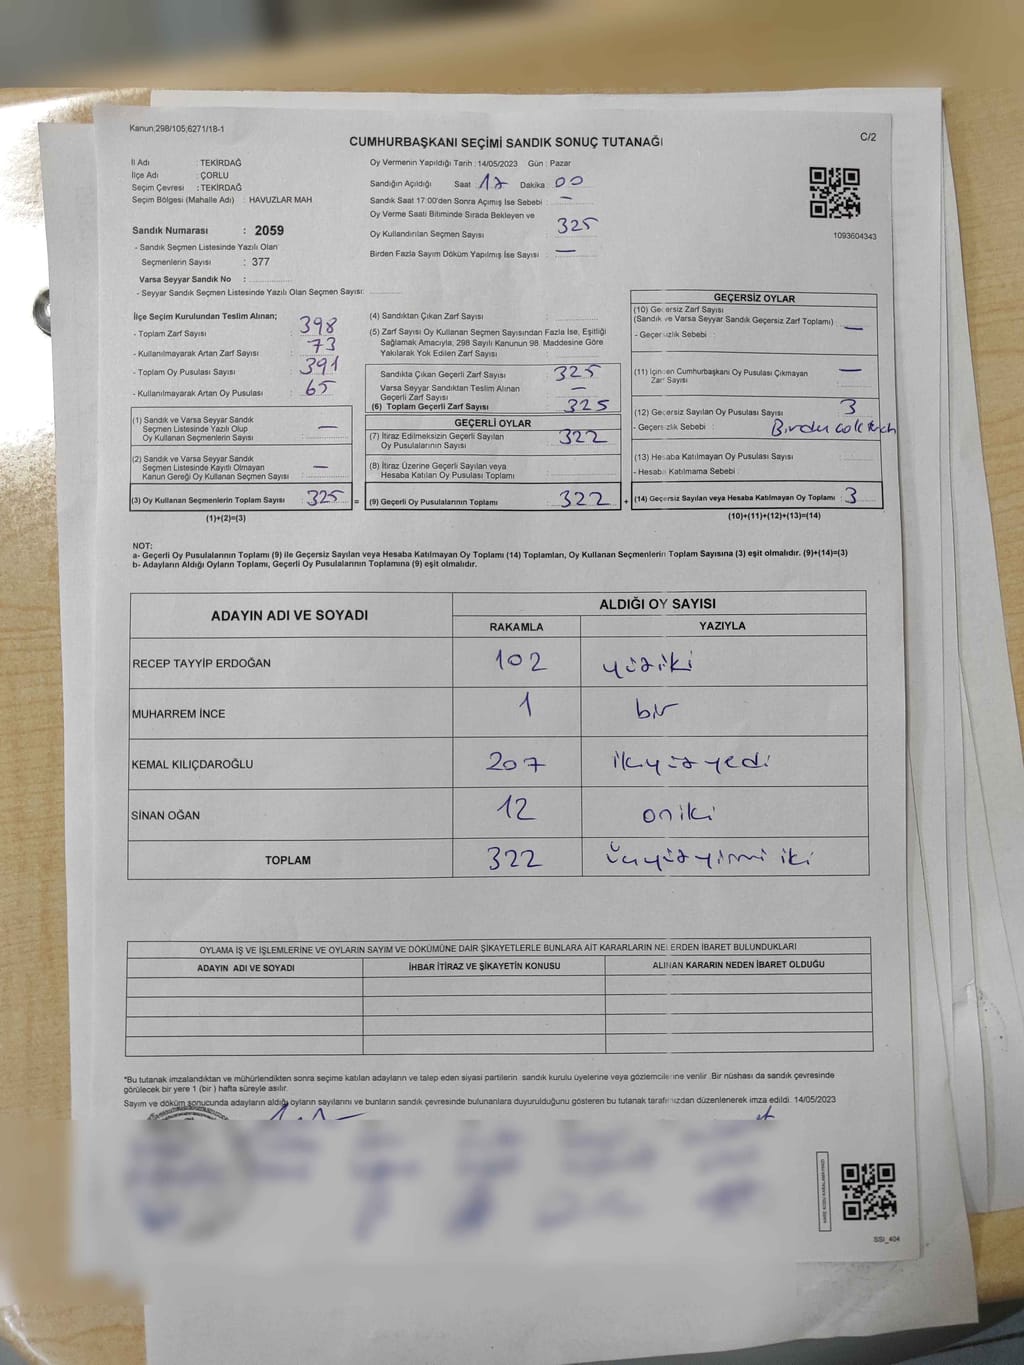 Kanun;298/105;6271/18-1
CUMHURBAŞKANI SEÇİMİ SANDIK SONUÇ TUTANAĞI
C/2
İl Adı : TEKİRDAĞ
İlçe Adı : ÇORLU
Seçim Çevresi : TEKİRDAĞ
Seçim Bölgesi (Mahalle Adı) : HAVUZLAR MAH
Sandık Numarası : 2059
- Sandık Seçmen Listesinde Yazılı Olan
Seçmenlerin Sayısı : 377
Varsa Seyyar Sandık No :
- Seyyar Sandık Seçmen Listesinde Yazılı Olan Seçmen Sayısı:
Oy Vermenin Yapıldığı Tarih : 14/05/2023 Gün : Pazar
Sandığın Açıldığı Saat 17 Dakika : 00
Sandık Saat 17:00'den Sonra Açımış İse Sebebi : —
Oy Verme Saati Bitiminde Sırada Bekleyen ve
Oy Kullandırılan Seçmen Sayısı : 325
Birden Fazla Sayım Döküm Yapılmış İse Sayısı : —
1093604343
İlçe Seçim Kurulundan Teslim Alınan;
- Toplam Zarf Sayısı : 398
- Kullanılmayarak Artan Zarf Sayısı : 73
- Toplam Oy Pusulası Sayısı : 391
- Kullanılmayarak Artan Oy Pusulası : 65
(1) Sandık ve Varsa Seyyar Sandık
Seçmen Listesinde Yazılı Olup
Oy Kullanan Seçmenlerin Sayısı : —
(2) Sandık ve Varsa Seyyar Sandık
Seçmen Listesinde Kayıtlı Olmayan
Kanun Gereği Oy Kullanan Seçmen Sayısı : —
(3) Oy Kullanan Seçmenlerin Toplam Sayısı : 325
(1)+(2)=(3)
=
(4) Sandıktan Çıkan Zarf Sayısı :
(5) Zarf Sayısı Oy Kullanan Seçmen Sayısından Fazla İse, Eşitliği
Sağlamak Amacıyla, 298 Sayılı Kanunun 98. Maddesine Göre
Yakılarak Yok Edilen Zarf Sayısı :
Sandıkta Çıkan Geçerli Zarf Sayısı : 325
Varsa Seyyar Sandıktan Teslim Alınan
Geçerli Zarf Sayısı : —
(6) Toplam Geçerli Zarf Sayısı : 325
GEÇERLİ OYLAR
(7) İtiraz Edilmeksizin Geçerli Sayılan
Oy Pusulalarının Sayısı : 322
(8) İtiraz Üzerine Geçerli Sayılan veya
Hesaba Katılan Oy Pusulası Toplamı :
(9) Geçerli Oy Pusulalarının Toplamı : 322
+
GEÇERSİZ OYLAR
(10) Geçersiz Zarf Sayısı
(Sandık ve Varsa Seyyar Sandık Geçersiz Zarf Toplamı) : —
- Geçersizlik Sebebi :
(11) İçinden Cumhurbaşkanı Oy Pusulası Çıkmayan
Zarf Sayısı : —
(12) Geçersiz Sayılan Oy Pusulası Sayısı : 3
- Geçersizlik Sebebi : Birden
(13) Hesaba Katılmayan Oy Pusulası Sayısı :
- Hesaba Katılmama Sebebi :
(14) Geçersiz Sayılan veya Hesaba Katılmayan Oy Toplamı : 3
(10)+(11)+(12)+(13)=(14)
NOT:
a- Geçerli Oy Pusulalarının Toplamı (9) ile Geçersiz Sayılan veya Hesaba Katılmayan Oy Toplamı (14) Toplamları, Oy Kullanan Seçmenlerin Toplam Sayısına (3) eşit olmalıdır. (9)+(14)=(3)
b- Adayların Aldığı Oyların Toplamı, Geçerli Oy Pusulalarının Toplamına (9) eşit olmalıdır.
ADAYIN ADI VE SOYADI
ALDIĞI OY SAYISI
RAKAMLA YAZIYLA
RECEP TAYYİP ERDOĞAN 102 yüziki
MUHARREM İNCE 1 bir
KEMAL KILIÇDAROĞLU 207 ikiyüzyedi
SİNAN OĞAN 12 oniki
TOPLAM 322 Üçyüzyirmi iki
OYLAMA İŞ VE İŞLEMLERİNE VE OYLARIN SAYIM VE DÖKÜMÜNE DAİR ŞİKAYETLERLE BUNLARA AİT KARARLARIN NELERDEN İBARET BULUNDUKLARI
ADAYIN ADI VE SOYADI İHBAR İTİRAZ VE ŞİKAYETİN KONUSU ALINAN KARARIN NEDEN İBARET OLDUĞU
*Bu tutanak imzalandıktan ve mühürlendikten sonra seçime katılan adayların ve talep eden siyasi partilerin sandık kurulu üyelerine veya gözlemcilerine verilir. Bir nüshası da sandık çevresinde
görülecek bir yere 1 (bir ) hafta süreyle asılır.
Sayım ve döküm sonucunda adayların aldığı oyların sayılarını ve bunların sandık çevresinde bulunanlara duyurulduğunu gösteren bu tutanak tarafımızdan düzenlenerek imza edildi. 14/05/2023
SSI_404